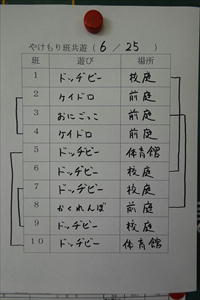 やけもり班共遊(6/25)
班 遊び 場所
1 ドッヂビー 校庭
2 ケイドロ 前庭
3 おにごっこ 前庭
4 ケイドロ 前庭
5 ドッヂビー 体育館
6 ドッヂビー 校庭
7 ドッヂビー 校庭
8 かくれんぼ 前庭
9 ドッヂビー 校庭
10 ドッヂビー 体育館